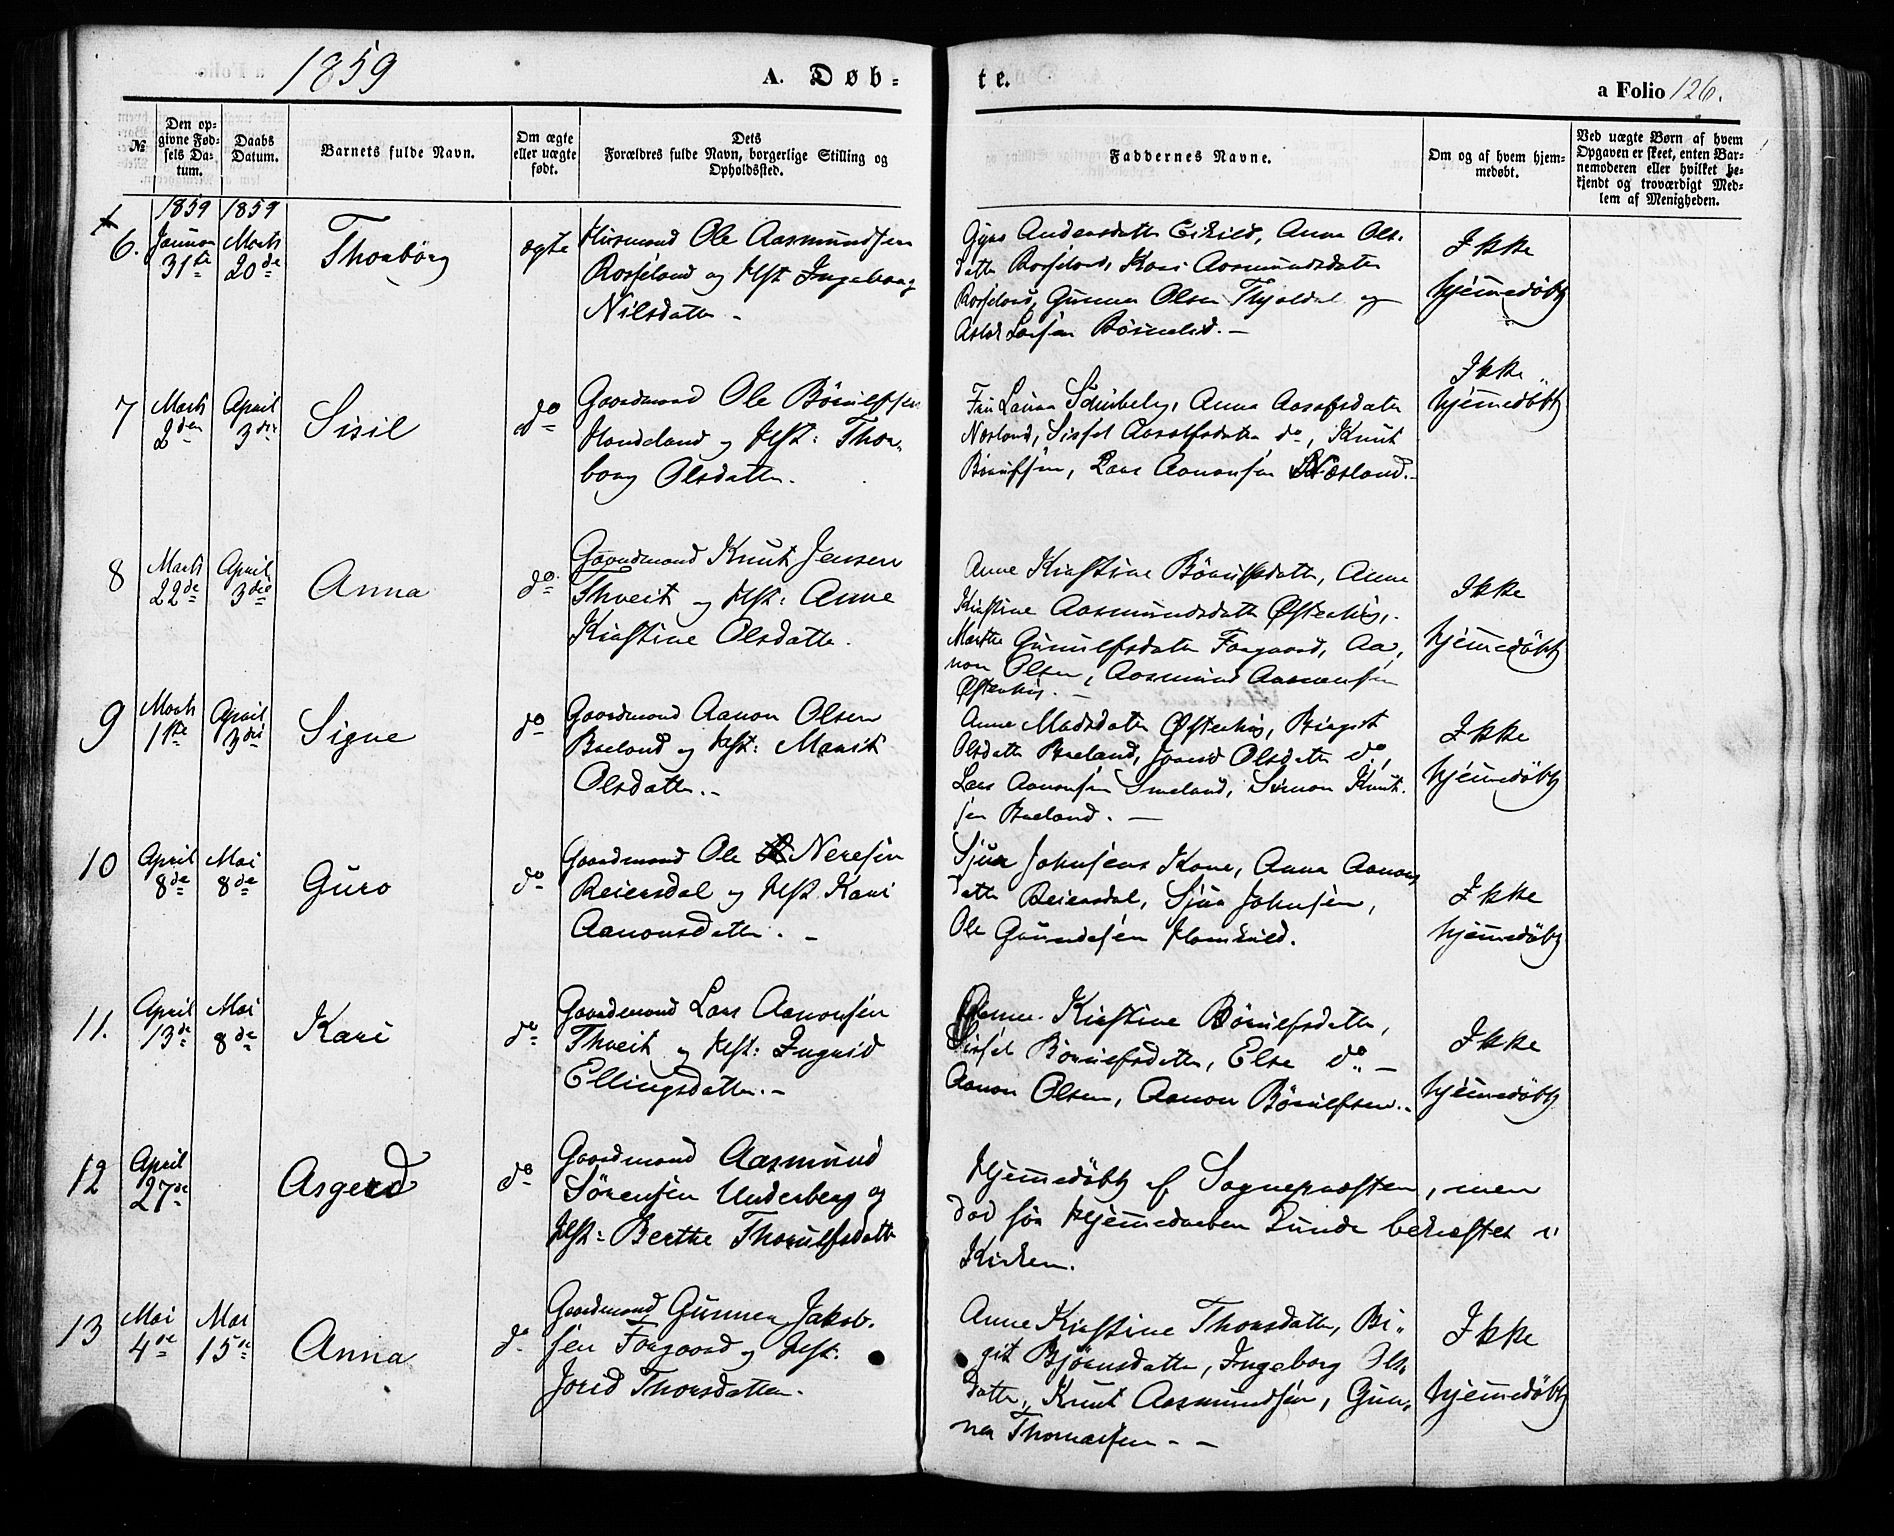 1859
A. Døb-
te.
a Folio 126.
№
Den op-
givne Fød-
sels Da-
tum.
Daabs
Datum.
Barnets fulde Navn.
Om ægte
eller uægte
født.
Dets
Forældres fulde Navn, borgerlige Stilling og
Opholdssted.
Faddernes Navne.
Om og af hvem hjem-
medøbt.
Ved uægte Børn af hvem
Opgaven er skeet, enten Bar-
nemoderen eller hvilket be-
kjendt og troværdigt Med-
lem af Menigheden.
1859 1859
6.
Januar
31te
Marts
20de
Thorbörg
ægte
Husmand Ole Aasmundsen
Rosseland og Hst Ingeborg
Nilsdatter -
Gyro Andersdatter Eikild, Anna Ols-
datter Rosseland, Kari Aasmundsdatter
Rosseland, Gunner Olsen og
Larsen
Ikke
hjemmedöbt
7
Marts
2den
April
3die
Sisil
do
Gaardmand Ole Börulfsen
Honneland og Hst: Thor-
borg Olsdatter.
Fru Laura Anna Aasulfsdatter
Næsland, Sissel Aasulfsdatter do, Knut
Börulfsen, Lars Aanonsen Næsland.-
Ikke
hjemmedöbt
8
Marts
22de
April
3die
Anna
do
Gaardmand Knut Jensen
Thveit og Hst: Anne
Kirstine Olsdatter.
Anne Kirstine Börulfsdatter, Anne
Kirstine Aasmundsdatter Øfterhus,
Marthe Gunulfsdatter Forgaard, Aa-
non Olsen, Aasmund Aanonsen
Øfterhus. -
Ikke
hjemmedöbt
9
Marts
1ste
April
3die
Signe
do
Gaardmand Aanon Olsen
Breland og Hst: Marit
Olsdatter.-
Anne Madsdatter Øfterhus, Birgit
Olsdatter Breland, Jorid Olsdatter do,
Lars Aanonsen Smeland, Simon Knut-
sen Breland. -
Ikke
hjemmedöbt
10
April
8de
Mai
8de
Guro
do
Gaardmand Ole Neresen
Reiersdal og Hst Kari
Aanonsdatter. -
Sjur Johnsens Kone, Anna Aanons
datter Reiersdal, Sjur Johnsen,
Ole Gundersen
Ikke
hjemmedöbt
11.
April
13de
Mai
8de
Kari
do
Gaardmand Lars Aanonsen
Thveit og Hst: Ingrid
Ellingsdatter.-
Anne Kirstine Börulfsdatter,
Sissel Börulfsdatter, Else do. -
Aanon Olsen, Aanon Börulfsen.-
Ikke
hjemmedöbt
12
April
27de
Asgerd
do
Gaardmand Aasmund
Sörensen Underberg og
Hst: Berthe Thorulfsdatter
Hjemmedöbt af Sognepræsten, men
död för Hjemmedaaben kunde bekræftes i
Kirken.
13
Mai
4de
Mai
15de
Anna
do
Gaardmand Gunner Jakob-
sen Forgaard og Hst:
Jorid Thorsdatter.
Anne Kirstine Thorsdatter, Bir-
git Björnsdatter, Ingeborg Ols-
datter, Knut Aasmundsen, Gun-
ner Thomassen - -
Ikke
hjemmedöbt